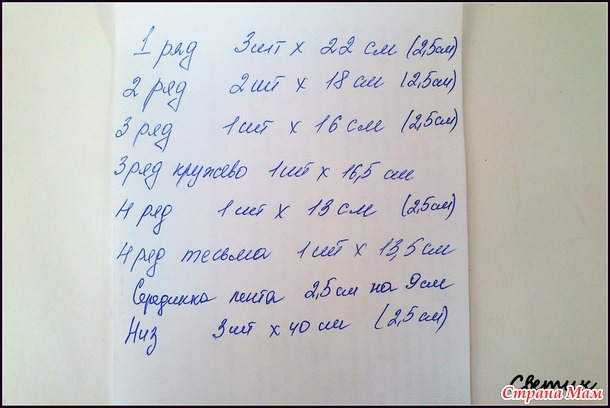 1 ряд 3шт х 22 см (2,5см)
2 ряд 2шт х 18 см (2,5см)
3 ряд 1шт х 16 см (2,5см)
3 ряд кружево 1шт х 16,5 см
4 ряд 1шт х 13 см (2,5см)
4 ряд тесьма 1шт х 13,5 см
Серединка лента 2,5 см на 9см
Низ 3шт х 40 см (2,5 см)
Светик
Страна Мам